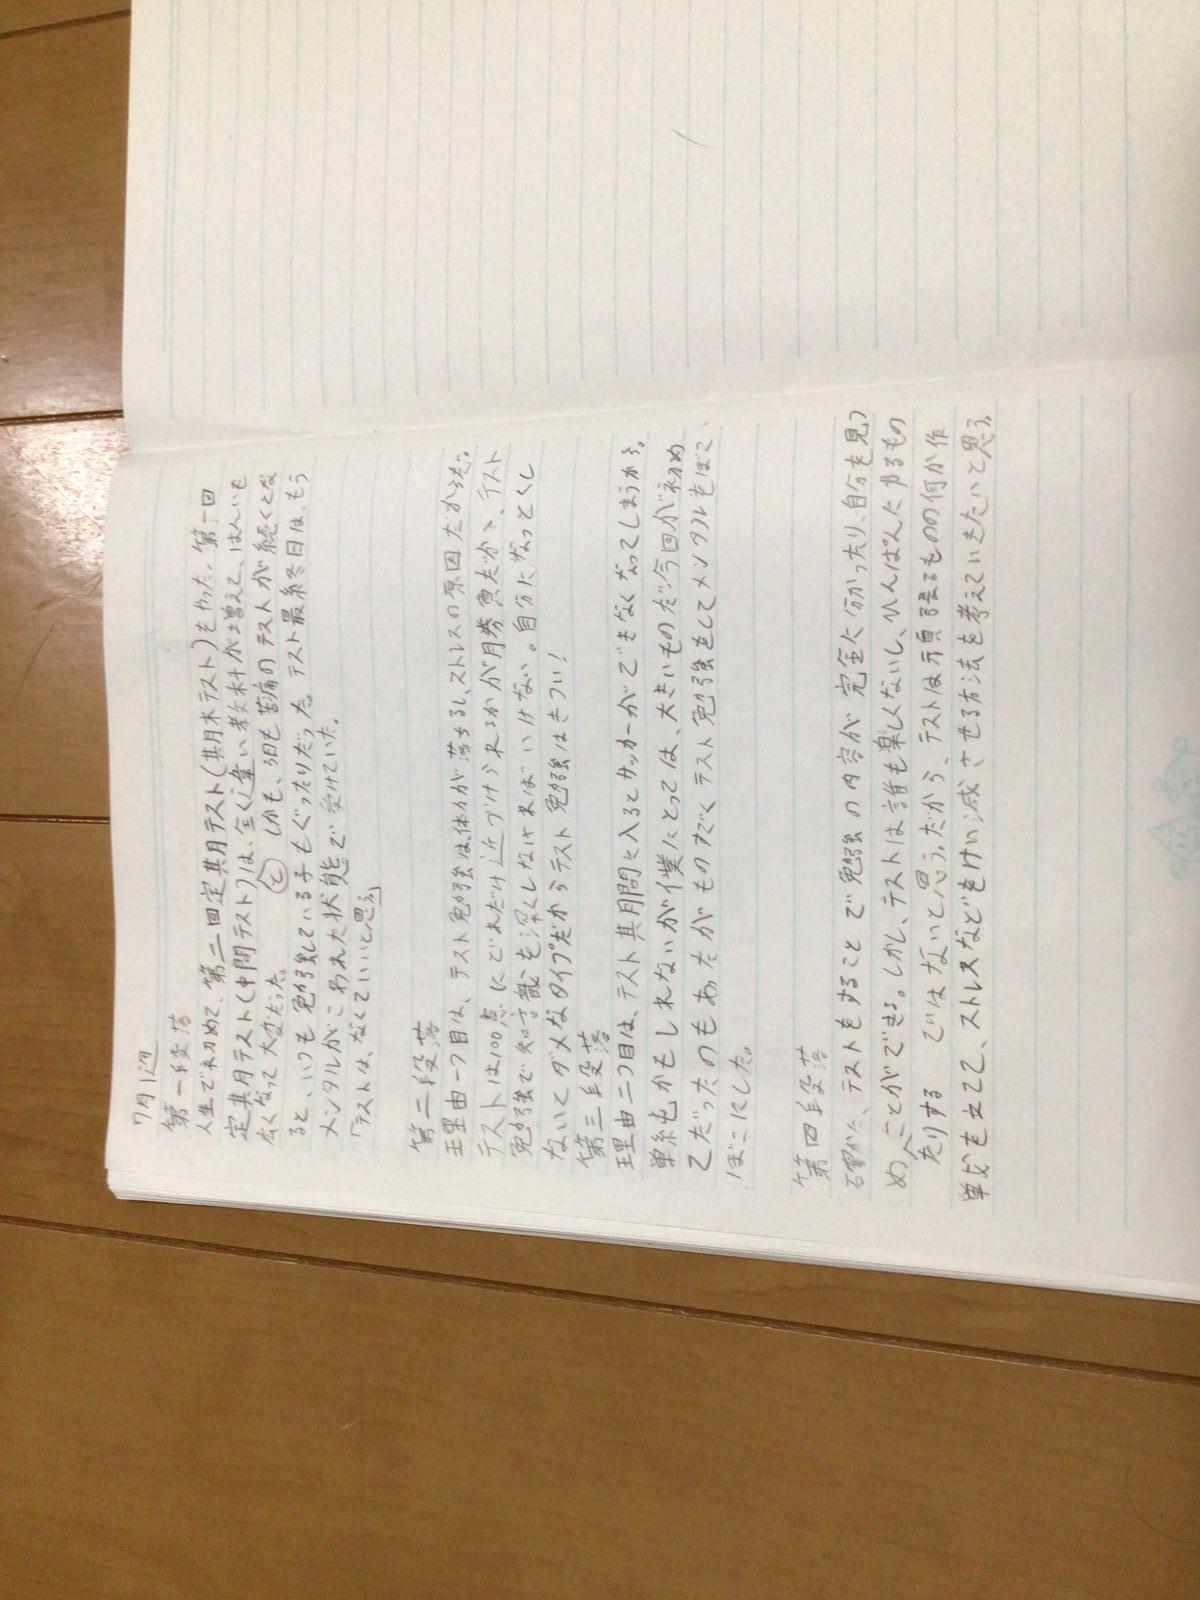 7月1週
第一段落
人生で初めて、第二回定期テスト(期末テスト)をやった。第一回
定期テスト(中間テスト)は、全く違い教科が増えて、はんいも
広くなって大変だった。しかも、3日も苦痛のテストが続くとな
と
ると、いつも勉強している子もぐったりだった。テスト最終日は、もう
メンタルがこわれた状態で受けていた。
「テストは、なくていいと思う」
第二段落
理由一つ目は、テスト勉強は、体力が落ちるし、ストレスの原因だからだ。
テストは100点にどれだけ近づけられるかが勝負だが、テスト
勉強で知識を深くしなければいけない。自分になっとくし
ないとダメなタイプだからテスト勉強はきつい!
第三段落
理由二つ目は、テスト期間に入るとサッカーができなくなってしまうから。
単純かもしれないが僕にとっては、大きいものだ。今回が初め
てだったのもあったがものすごくテスト勉強をしてメンタルをぼこ
ぼこにした。
第四段落
確かに、テストをすることで勉強の内容が完全に分かったり、自分を見つ
めることができる。しかし、テストは誰も楽しくないし、いんぱんたあるもの
だりする ではないと思う。だから、テストは頑張るものの何か作
戦を立てて、ストレスなどをけい減させる方法を考えていきたいと思う。